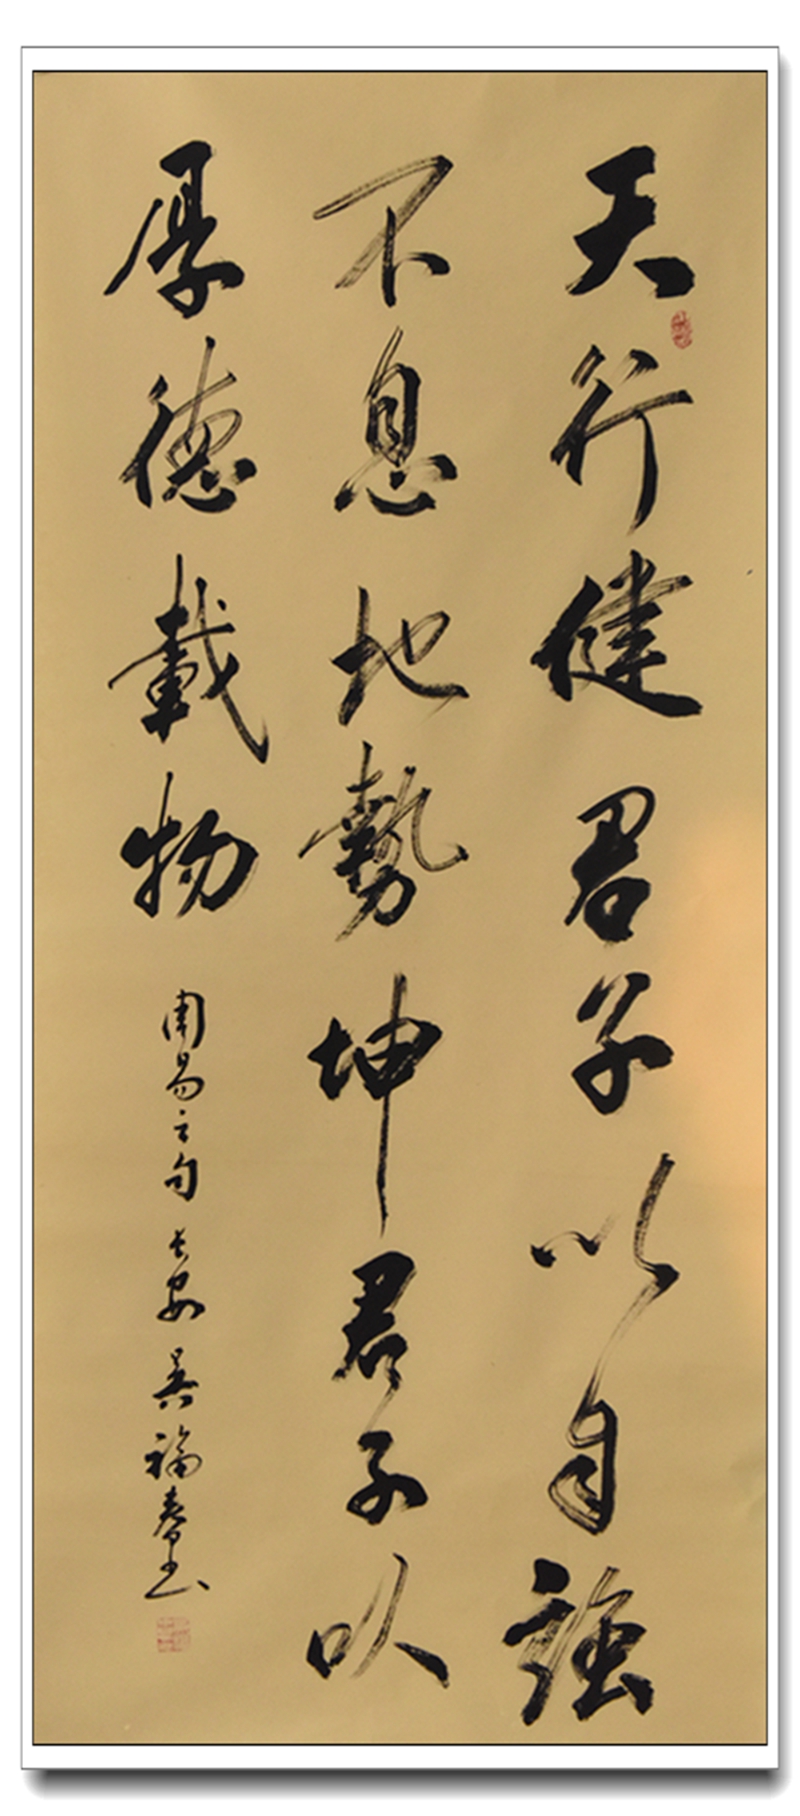 天行健君子以自強
不息地勢坤君子以
厚德載物
周易之句 長安 吳福春書